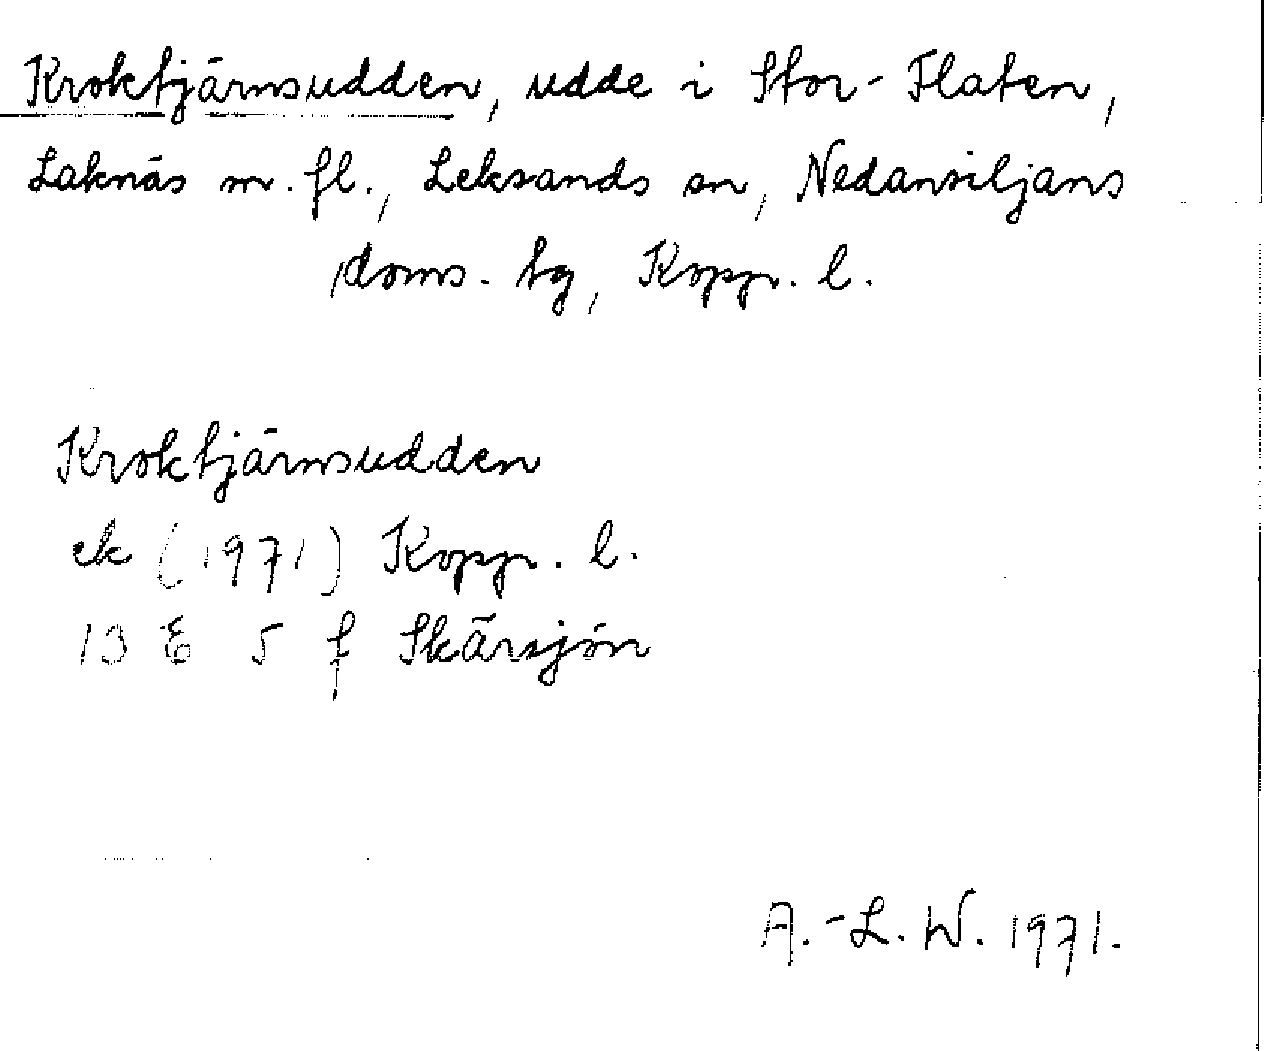 Kroktjärnsudden, udde i Stor-Flaten,
Laknäs m. fl., Leksands sn, Nedansiljans
doms. tg, Kopp. l.
Kroktjärnsudden
ek (1971) Kopp. l.
13 E 5 f Skärsjön
A.-L. W. 1971.